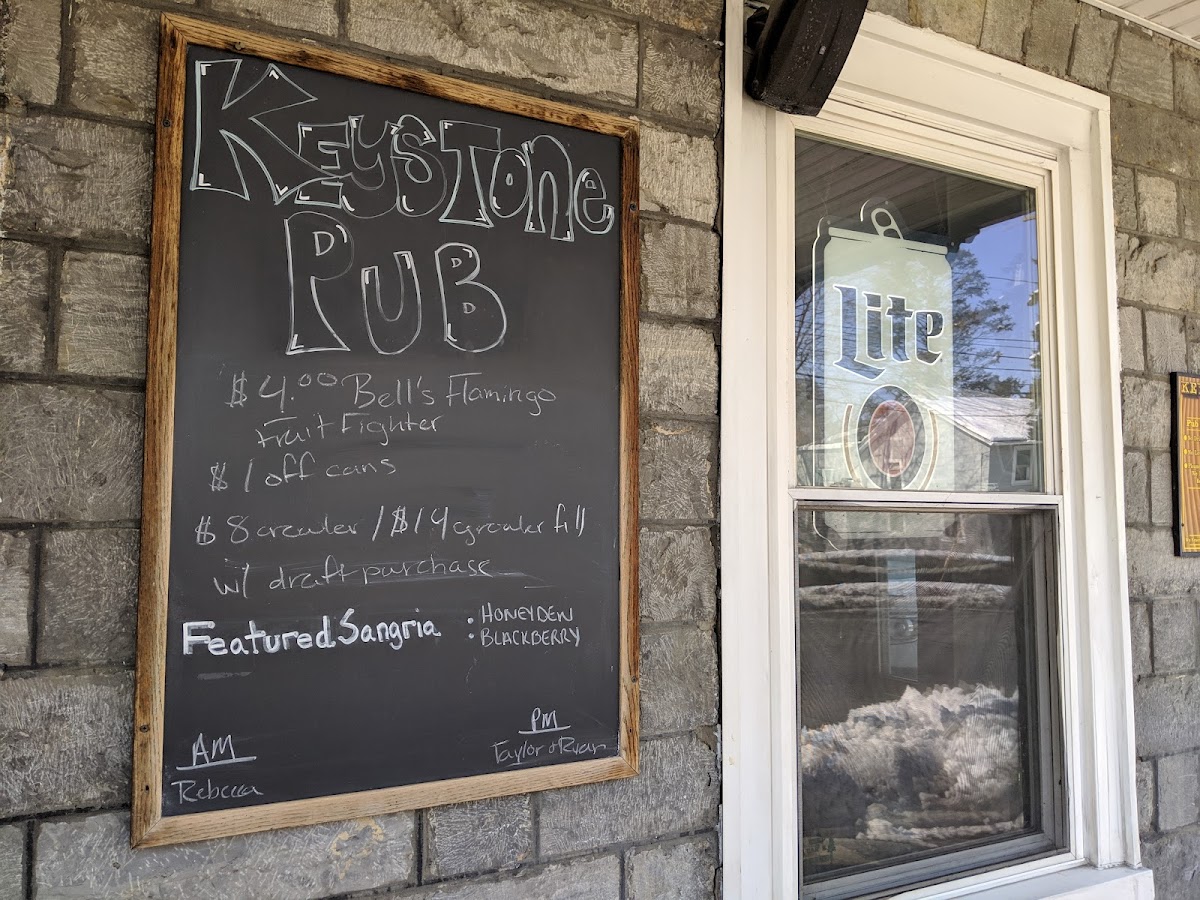 KEYSTONE
PUB
$4.00 Bell's Flamingo
Fruit Fighter
$1 off cans
$8 crowler / $14 growler fill
w/ draft purchase
Featured Sangria : HONEYDEW
: BLACKBERRY
AM
Rebecca
PM
Taylor & Ryan
Lite